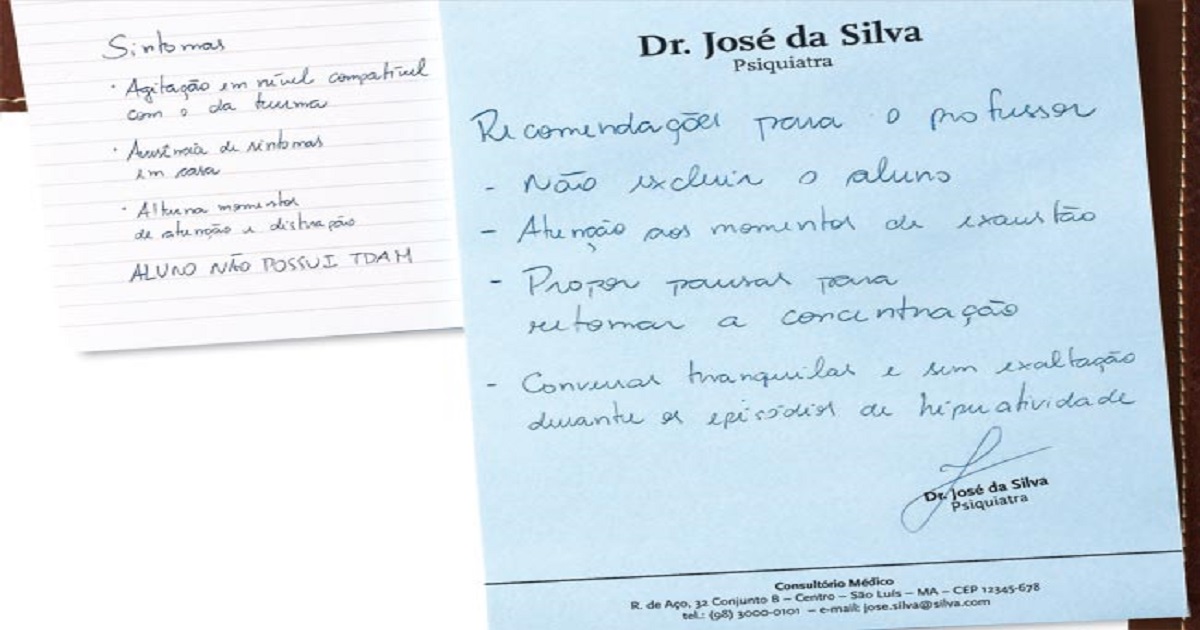 Sintomas
· Agitação em nível compatível
com o da turma
· Ausência de sintomas
em casa
· Alterna momentos
de atenção e distração
ALUNO NÃO POSSUI TDAH
Dr. José da Silva
Psiquiatra
Recomendações para o professor
- Não excluir o aluno
- Atenção aos momentos de exaustão
- Propor pausas para
retomar a concentração
- Conversas tranquilas e sem exaltação
durante os episódios de hiperatividade
Dr. José da Silva
Psiquiatra
Consultório Médico
R. de Aço, 32 Conjunto B – Centro – São Luís – MA – CEP 12345-678
tel.: (98) 3000-0101 – e-mail: jose.silva@silva.com